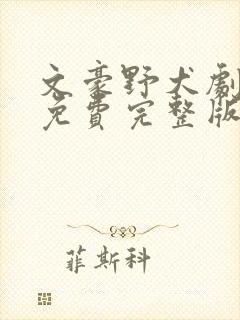 文豪野犬劇
免費完整版
菲斯科